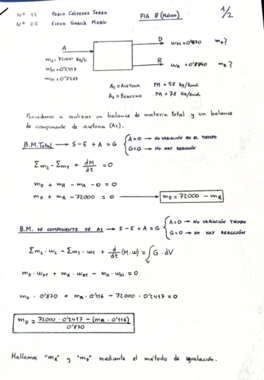 Nº 11 Pablo Cáceres Serra
Nº 22 Elena García Marín
FIA 8 (Aula)
1/2
A
m₀ = 72000 kg/h
w₀₁ = 0'2417
D
w_D1 = 0'870 m_D?
R
w_R = 0'8840 m_R?
A₁ = Acetona PM = 58 kg/kmol
A₂ = Benceno PM = 78 kg/kmol
Procedemos a realizar un balance de materia total y un balance
de componente de acetona (A₁).
B.M. Total → S - E + A = G { A=0 → NO VARIACIÓN EN EL TIEMPO
G=0 → NO HAY REACCIÓN
Σm_s - Σm_e + dM/dt = 0
m_D + m_R - m_A - 0 = 0
m_D + m_R - 72000 = 0 → m_D = 72000 - m_R
B.M. DE COMPONENTE DE A₁ → S - E + A = G { A=0 → NO VARIACIÓN TIEMPO
G=0 → NO HAY REACCIÓN
Σm_s · w_s - Σm_e · w_e + d/dt (M·w) = ∫ G · dV
m_D · w_D1 + m_R · w_R1 - m_A · w_A1 = 0
m_D · 0'870 + m_R · 0'116 - 72000 · 0'2417 = 0
m_D = 72000 · 0'2417 - (m_R · 0'116) / 0'870
Hallamos "m_R" y "m_D" mediante el método de igualación.